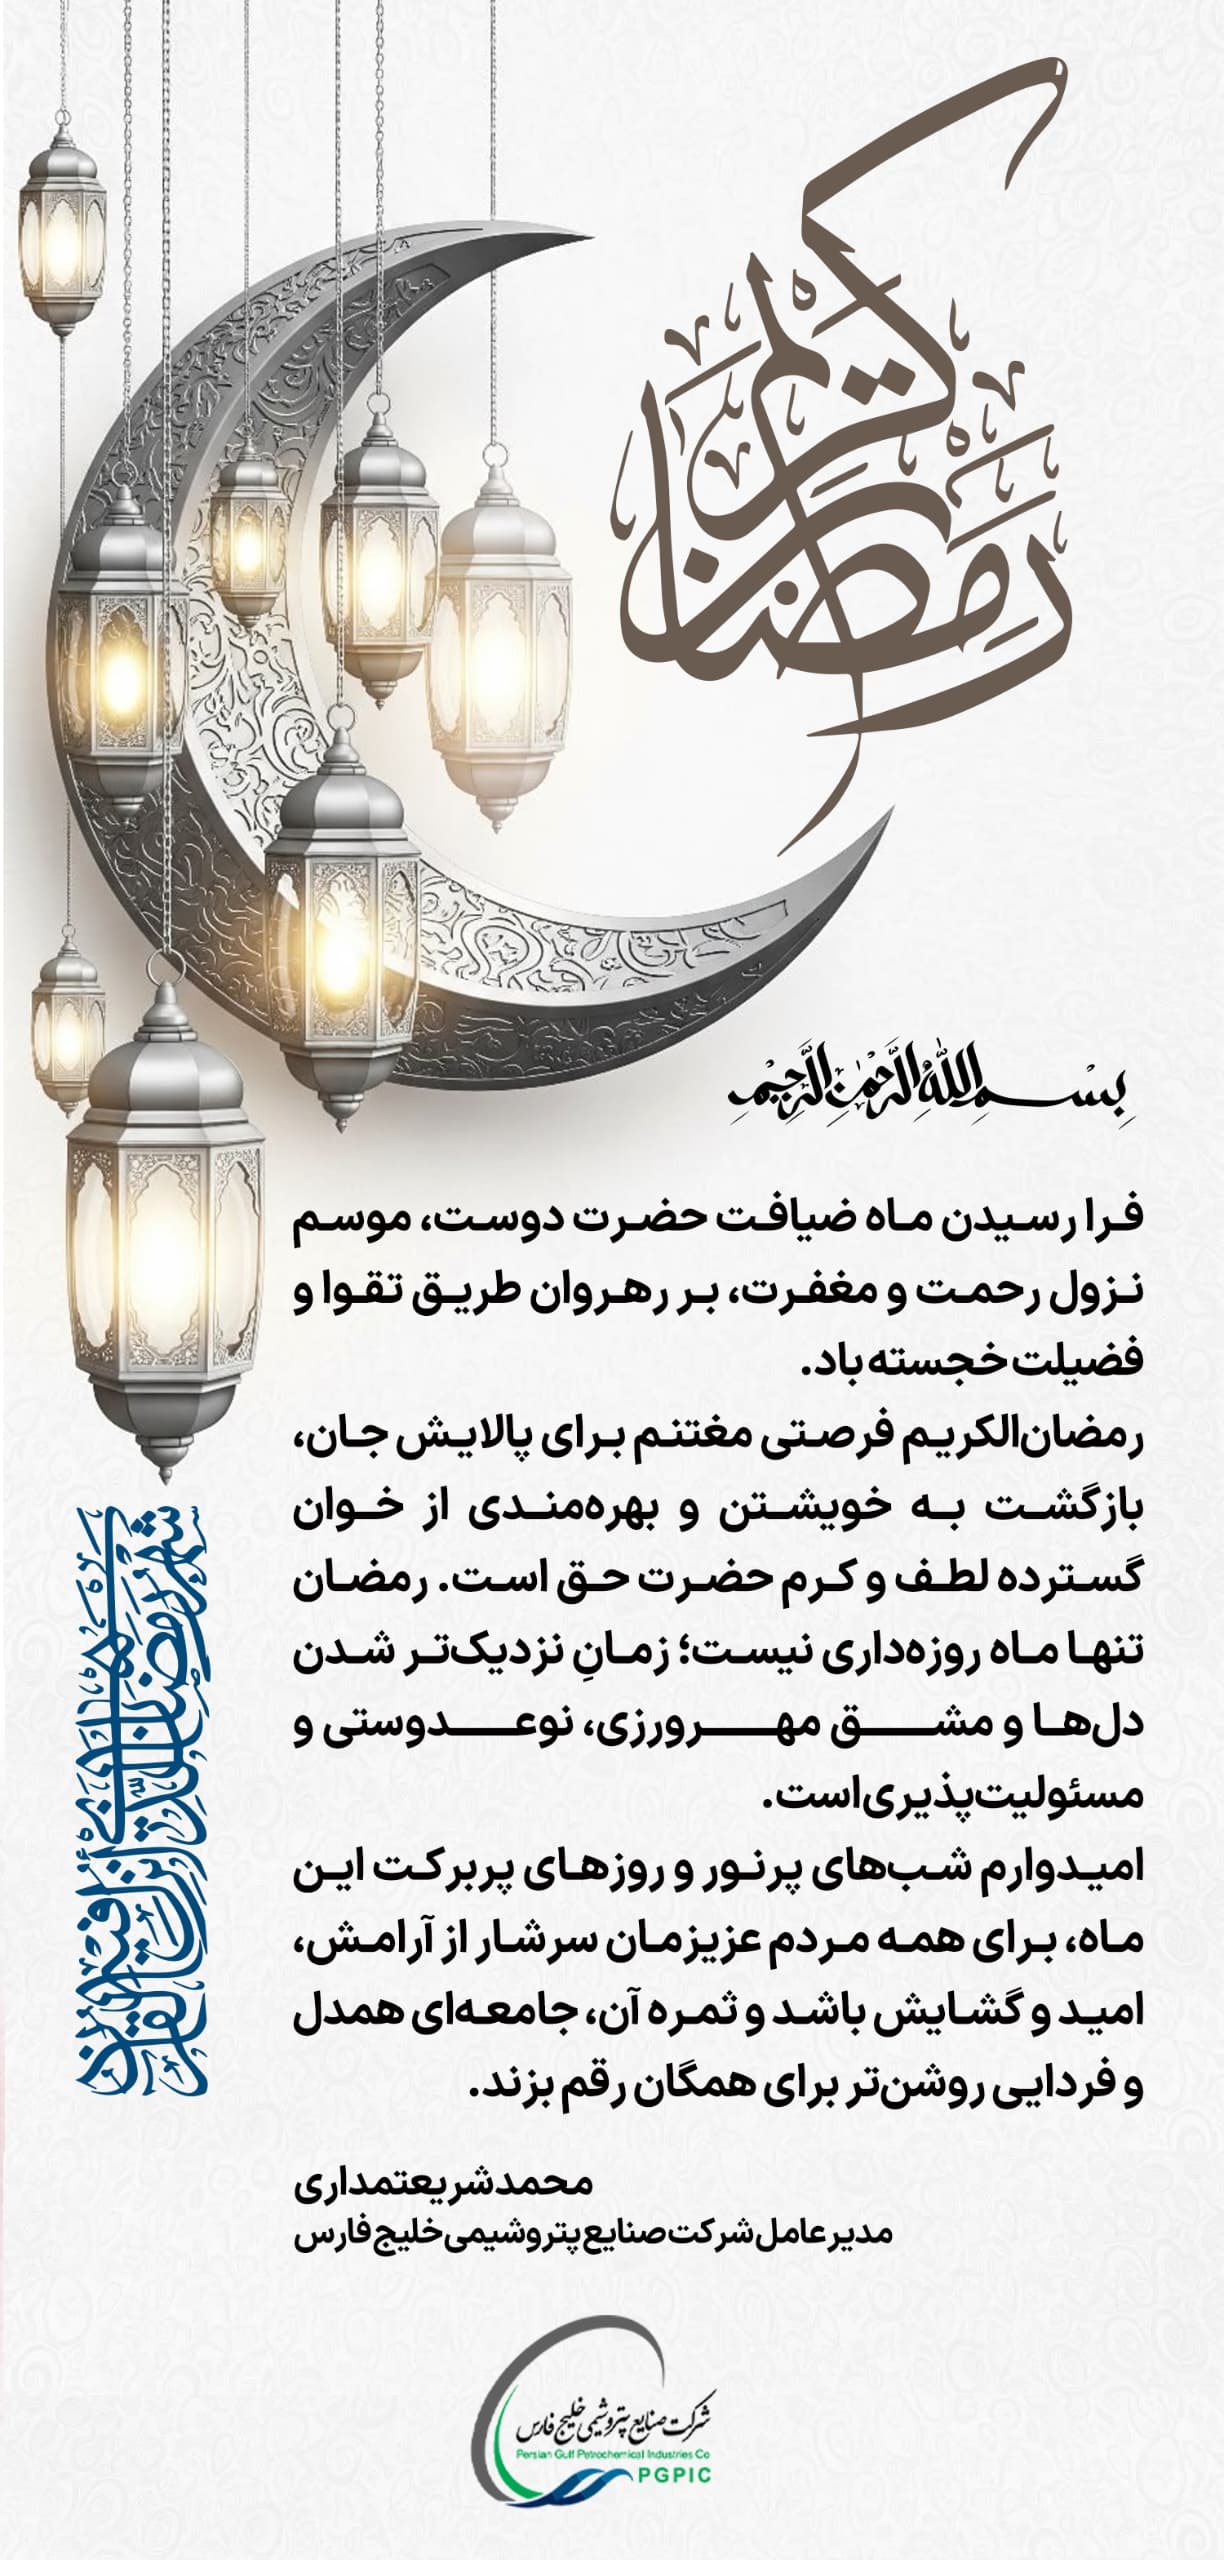 رمضان کریم
بسم الله الرحمن الرحیم
فرا رسیدن ماه ضیافت حضرت دوست، موسم
نزول رحمت و مغفرت، بر رهروان طریق تقوا و
فضیلت خجسته باد.
رمضان‌الکریم فرصتی مغتنم برای پالایش جان،
بازگشت به خویشتن و بهره‌مندی از خوان
گسترده لطف و کرم حضرت حق است. رمضان
تنها ماه روزه‌داری نیست؛ زمانِ نزدیک‌تر شدن
دل‌ها و مشق مهرورزی، نوعدوستی و
مسئولیت‌پذیری است.
امیدوارم شب‌های پرنور و روزهای پربرکت این
ماه، برای همه مردم عزیزمان سرشار از آرامش،
امید و گشایش باشد و ثمره آن، جامعه‌ای همدل
و فردایی روشن‌تر برای همگان رقم بزند.
شهر رمضان الذی انزل فیه القرآن
محمد شریعتمداری
مدیر عامل شرکت صنایع پتروشیمی خلیج فارس
شرکت صنایع پتروشیمی خلیج فارس
Persian Gulf Petrochemical Industries Co
PGPIC